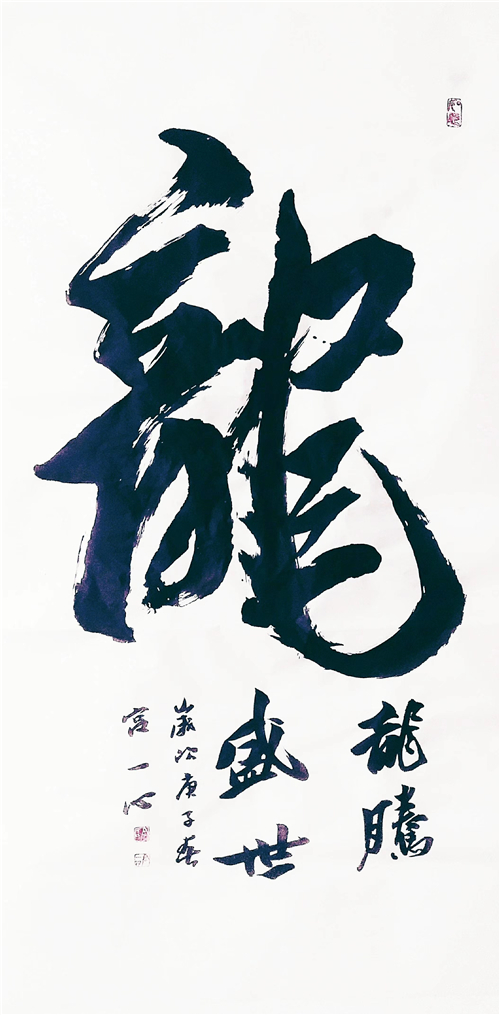 龍
龍騰
盛世
歲次庚子春
宮一心